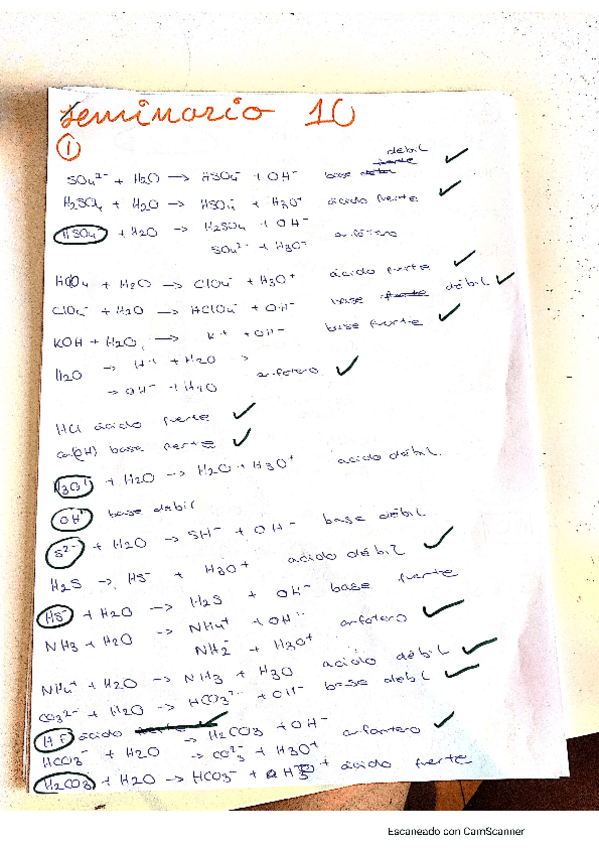 Seminario 10
①
débil
SO₄²⁻ + H₂O → HSO₄⁻ + OH⁻ base
H₂SO₄ + H₂O → HSO₄⁻ + H₃O⁺ ácido fuerte
HSO₄⁻ + H₂O → H₂SO₄ + OH⁻
SO₄²⁻ + H₃O⁺ anfótero
HClO₄ + H₂O → ClO₄⁻ + H₃O⁺ ácido fuerte
ClO₄⁻ + H₂O → HClO₄ + OH⁻ base fuerte débil
KOH + H₂O → K⁺ + OH⁻ base fuerte
H₂O → H⁺ + H₂O
→ OH⁻ + H₂O anfotero
HCl ácido fuerte
Ca(OH) base fuerte
H₃O⁺ + H₂O → H₂O + H₃O⁺ acido débil
OH⁻ base débil
S²⁻ + H₂O → SH⁻ + OH⁻ base débil
H₂S → HS⁻ + H₃O⁺ acido débil
HS⁻ + H₂O → H₂S + OH⁻ base fuerte
NH₃ + H₂O → NH₄⁺ + OH⁻ anfotero
NH₂⁻ + H₃O⁺
NH₄⁺ + H₂O → NH₃ + H₃O acido débil
CO₃²⁻ + H₂O → HCO₃²⁻ + OH⁻ base débil
HF ácido
HCO₃⁻ + H₂O → H₂CO₃ + OH⁻ anfontero
→ CO₃²⁻ + H₃O⁺
H₂CO₃ + H₂O → HCO₃⁻ + H₃O⁺ ácido fuerte
Escaneado con CamScanner